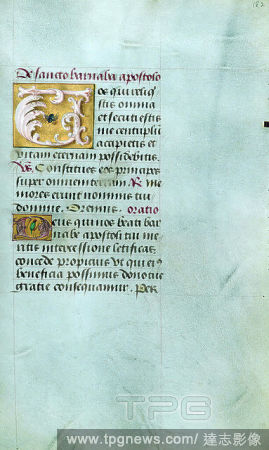 182
De sancto barnaba apostolo
Vos qui reliqui
stis omnia
et secuti estis
me centuplu
accipietis et
vitam eternam possidebitis.
Vs. Constitues eos principes
super omnem terram R. me
mores erunt nominis tui
domine. Oremus. oratio
Deus qui nos beati bar
nabe apostoli tui me
ritis intercessione letificas
concede propicius vt qui ei9
beneficia poscimus dono tue
gratie consequamur. Per
TPG
www.tpgnews.com/達志影像